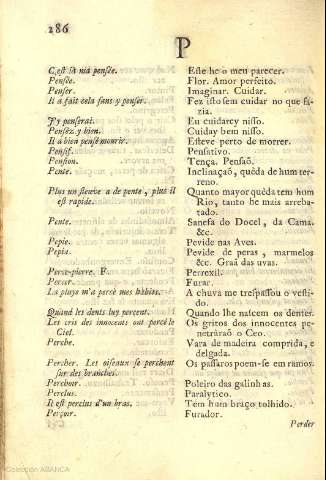 286
P
C'est là ma pensée. Este he o meu parecer.
Pensée. Flor. Amor perfeito.
Penser. Imaginar. Cuidar.
Il a fait cela sans y penser. Fez isto sem cuidar no que fa-
zia.
J'y penserai. Eu cuidarey nisso.
Pensez y bien. Cuiday bem nisso.
Il a bien pensé mourir. Esteve perto de morrer.
Pensif. Pensativo.
Pension. Tença. Pensaõ.
Pente. Inclinaçaõ, quéda de hum ter-
reno.
Plus un fleuve a de pente, plus il Quanto mayor quéda tem hum
est rapide. Rio, tanto he mais arreba-
tado.
Pente. Sanefa do Docel, da Cama.
&c.
Pepie. Pevide nas Aves.
Pepin. Pevide de peras, marmelos
&c. Graã das uvas.
Perce-pierre. F. Perrexil.
Percer. Furar.
La pluye m'a percé mes habits. A chuva me trespassou o vesti-
do.
Quand les dents luy percent. Quando lhe nascem os dentes.
Les cris des innocens ont percé le Os gritos dos innocentes pe-
Ciel. netráraõ o Ceo.
Perche. Vara de madeira comprida, e
delgada.
Percher. Les oiseaux se perchent Os passaros poem-se em ramos.
sur des branches.
Perchoir. Poleiro das galinhas.
Perclus. Paralytico.
Il est perclus d'un bras. Tem hum braço tolhido.
Perçoir. Furador.
Perder
Colección ABANCA